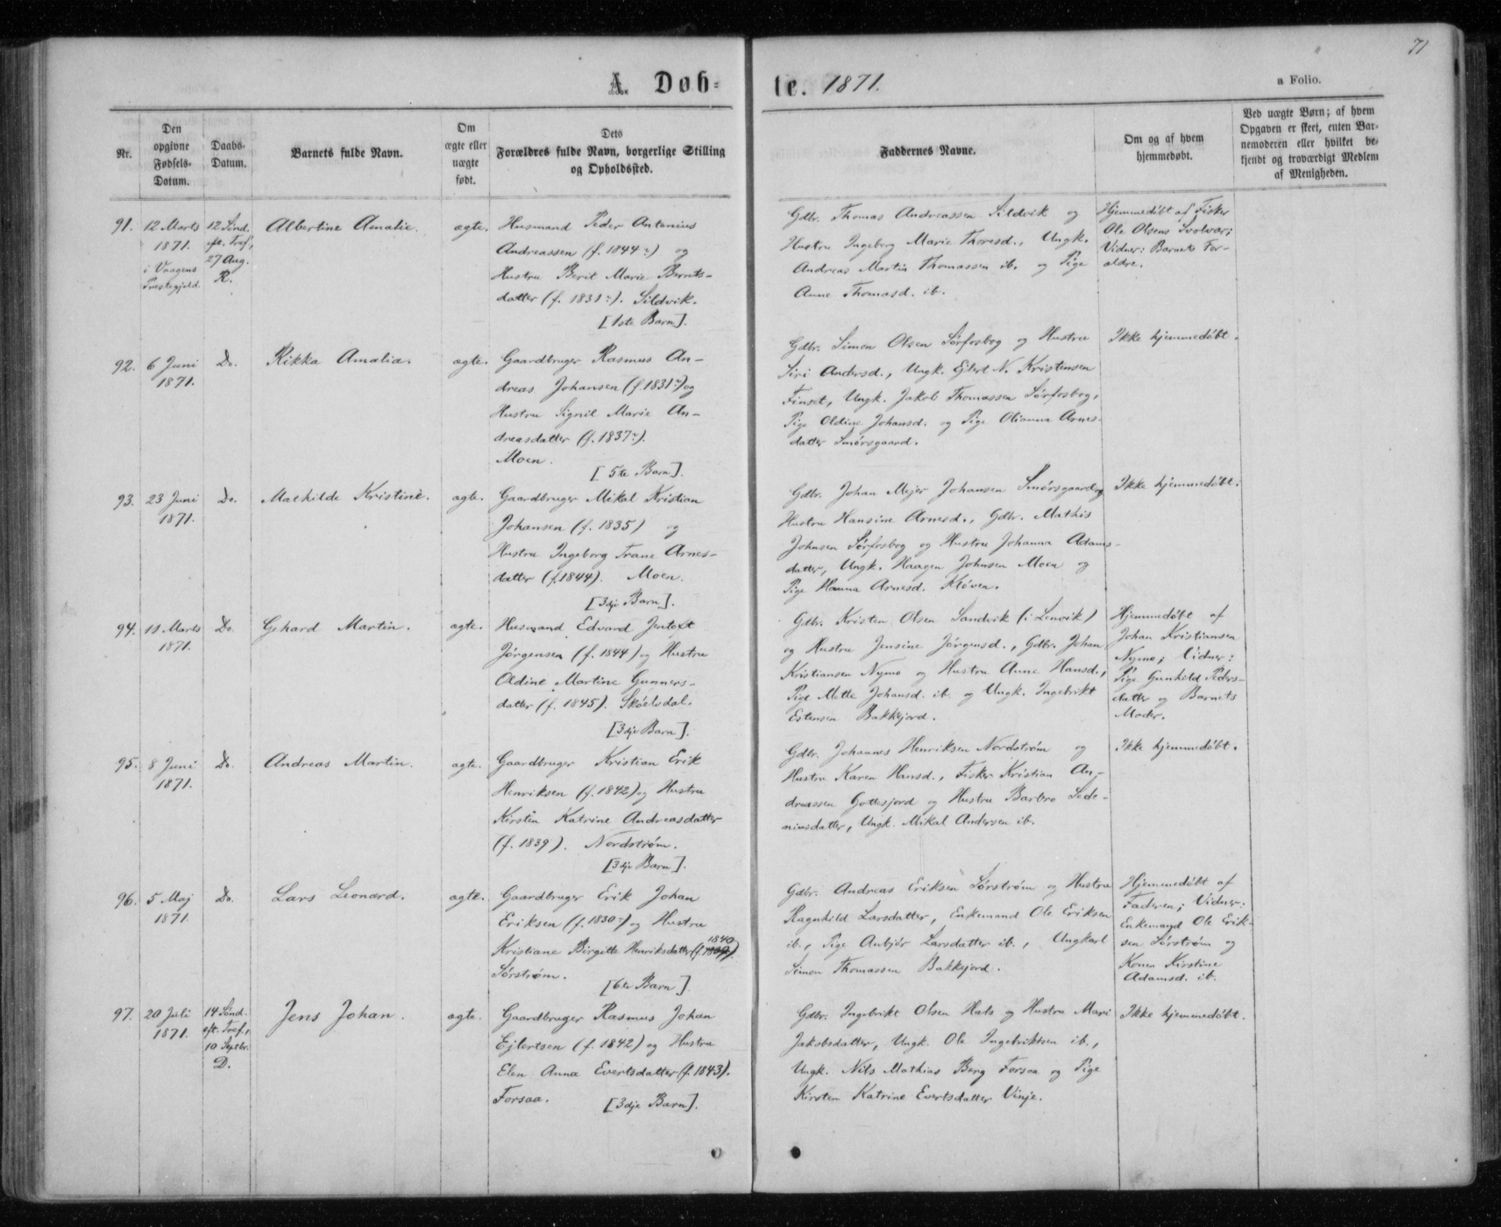 71
A. Døb=
te. 1871.
a Folio.
Nr.
Den opgivne Fødsels-Datum.
Daabs-Datum.
Barnets fulde Navn.
Om ægte eller uægte født.
Dets Forældres fulde Navn, borgerlige Stilling og Opholdssted.
Faddernes Navne.
Om og af hvem hjemmedøbt.
Ved uægte Børn; af hvem Opgaven er skeet, enten Barnemoderen eller hvilket bekjendt og troværdigt Medlem af Menigheden.
91.
12 Marts
1871.
i Vaagens
Præstegjeld.
12 Sønd.
eft. Tref.,
27 Aug.
R.
Albertine Amalie.
ægte.
Husmand Peder Antonius
Andreassen (f. 1844) og
Hustru Berit Marie Bernts-
datter (f. 1831). Sildvik.
[1ste Barn].
Gdbr. Thomas Andreassen Sildvik og
Hustru Ingeborg Marie Thoresd., Ungk.
Andreas Martin Thomassen ib. og Pige
Anne Thomasd. ib.
Hjemmedøbt af Fisker
Ole Olsens Svolvær;
Vidner: Barnets For-
ældre.
92.
6 Juni
1871.
Do.
Rikka Amalia.
ægte.
Gaardbruger Rasmus An-
dreas Johansen (f. 1831) og
Hustru Signil Marie An-
dreasdatter (f. 1837).
Moen.
[5te Barn].
Gdbr. Simon Olsen Sørforsbog og Hustru
Siri Andersd., Ungk. Ejlert N. Kristensen
Finset, Ungk. Jakob Thomassen Sørforsbog,
Pige Oldine Johansd. og Pige Olianna Arnes-
datter Smørsgaard.
Ikke hjemmedøbt.
93.
23 Juni
1871.
Do.
Mathilde Kristine.
ægte.
Gaardbruger Mikal Kristian
Johansen (f. 1835) og
Hustru Ingeborg Trane Arnes-
datter (f. 1844). Moen.
[3dje Barn].
Gdbr. Johan Mejer Johansen Smørsgaard og
Hustru Hansine Arnesd., Gdbr. Mathis
Johnsen Sørforsbog og Hustru Johanna Adams-
datter, Ungk. Haagen Johnsen Moen og
Pige Hanna Arnesd. Kløven.
Ikke hjemmedøbt.
94.
11 Marts
1871.
Do.
Gehard Martin.
ægte.
Husmand Edvard Jentoft
Jørgensen (f. 1844) og Hustru
Oldine Martine Gunners-
datter (f. 1845). Skøelvdal.
[3dje Barn].
Gdbr. Kristen Olsen Sandvik (i Lenvik)
og Hustru Jensine Jørgensd., Gdbr. Johan
Kristiansen Nymo og Hustru Anne Hansd.,
Pige Mette Johansd. ib. og Ungk. Ingebrikt
Estensen Bakkejord.
Hjemmedøbt af
Johan Kristiansen
Nymo; Vidner:
Pige Gunhild Peders-
datter og Barnets
Moder.
95.
8 Juni
1871.
Do.
Andreas Martin.
ægte.
Gaardbruger Kristian Erik
Henriksen (f. 1842) og Hustru
Kirstin Katrine Andreasdatter
(f. 1839). Nordstrøm.
[3dje Barn].
Gdbr. Johannes Henriksen Nordstrøm og
Hustru Karen Hansd., Fisker Kristian An-
dreassen Gottesjord og Hustru Barbro Sede-
niusdatter, Ungk. Mikal Andersen ib.
Ikke hjemmedøbt.
96.
5 Maj
1871.
Do.
Lars Leonard.
ægte.
Gaardbruger Erik Johan
Eriksen (f. 1830) og Hustru
Kristiane Birgitte Henriksdatter (f. 1840)
Sørstrøm.
[6te Barn]
Gdbr. Andreas Eriksen Sørstrøm og Hustru
Ragnhild Larsdatter, Enkemand Ole Eriksen
ib., Pige Anbjør Larsdatter ib., Ungkarl
Simon Thomassen Bakkejord.
Hjemmedøbt af
Faderen; Vidner:
Enkemand Ole Erik-
sen Sørstrøm og
Konen Kirstine
Adamsd. ib.
97.
20 Juli
1871.
14 Sønd.
eft. Tref.,
10 Septbr.
D.
Jens Johan.
ægte.
Gaardbruger Rasmus Johan
Ejlertsen (f. 1842) og Hustru
Elen Anna Evertsdatter (f. 1843).
Forsaa.
[3dje Barn].
Gdbr. Ingebrikt Olsen Hals og Hustru Mari
Jakobsdatter, Ungk. Ole Ingebriktsen ib.,
Ungk. Nils Mathias Berg Forsaa og Pige
Kirsten Katrine Evertsdatter Vinje.
Ikke hjemmedøbt.